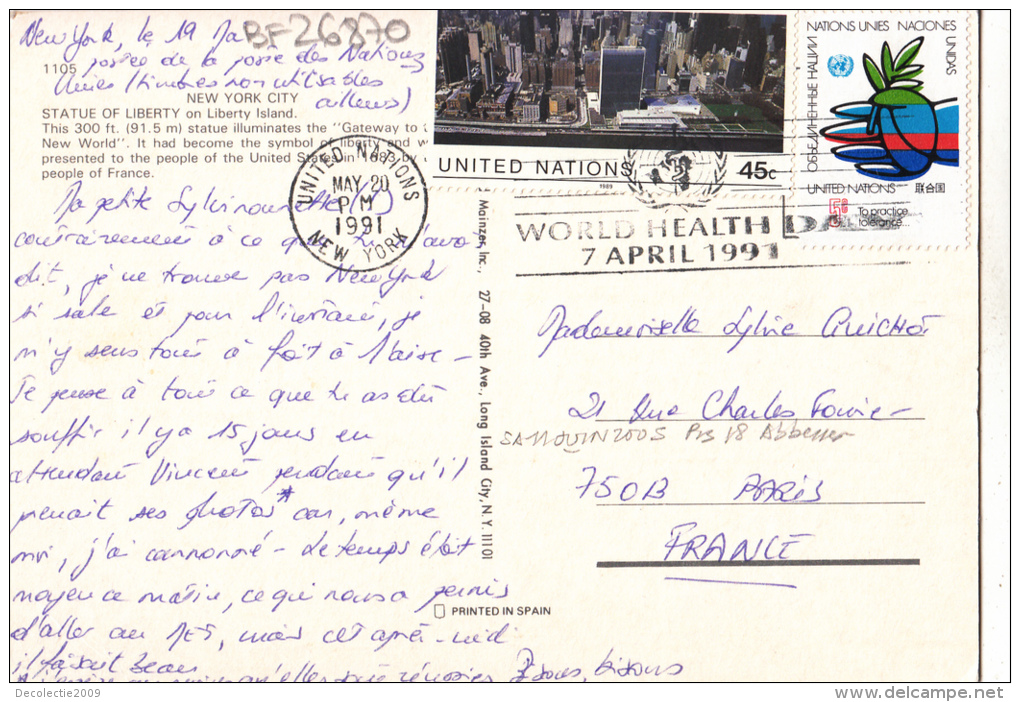 New York, le 19 Ma
BF26870
postée de la poste des Nations
1105
Unies (timbres non utilisables
ailleurs)
NEW YORK CITY
STATUE OF LIBERTY on Liberty Island.
This 300 ft. (91.5 m) statue illuminates the "Gateway to
New World". It had become the symbol of liberty and w
presented to the people of the United States in 1887 by
people of France.
UNITED NATIONS
MAY 20
PM
1991
NEW YORK
UNITED NATIONS
1989
45c
NATIONS UNIES NACIONES UNIDAS
ОБЪЕДИНЕННЫЕ НАЦИИ
UNITED NATIONS 联合国
5c
To practice
tolerance...
WORLD HEALTH DAY
7 APRIL 1991
Ma petite Sylvinounette
contrairement à ce que tu m'avais
dit, je ne trouve pas New York
si sale et pour l'instant, je
m'y sens tout à fait à l'aise -
Je pense à tout ce que tu as dû
souffrir il y a 15 jours en
attendant Vincent pendant qu'il
prenait ses photos* car, même
moi, j'ai cannoné - le temps était
moyen ce matin, ce qui nous a permis
d'aller au MET, mais cet après-midi
il faisait beau
qu'elles soient réussies Bisous, bisous
Mainzer, Inc., 27-08 40th Ave., Long Island City, N.Y. 11101
PRINTED IN SPAIN
Mademoiselle Sylvie GUICHOT
21 Rue Charles Fourier
SA 11 JUIN 2005 Prs 18 Abbesses
75013 PARIS
FRANCE
Decolectie2009
www.delcampe.net